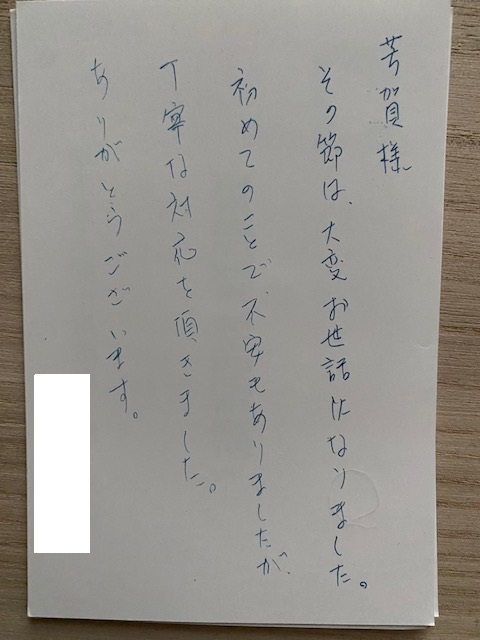 芳賀様
その節は、大変お世話になりました。
初めてのことで、不安もありましたが、
丁寧な対応を頂きました。
ありがとうございます。